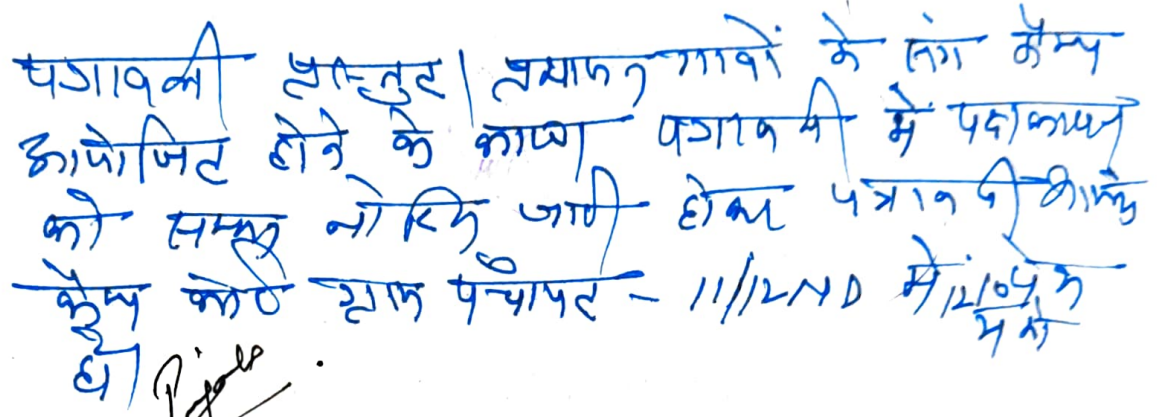 पत्रावली प्रस्तुत। प्रशासन गावों के संग कैम्प
आयोजित होने के कारण पत्रावली में पक्षकारान
को सम्मन नोटिस जारी होकर पत्रावली
कैम्प कोर्ट ग्राम पंचायत - 11/12 ND में
हो।